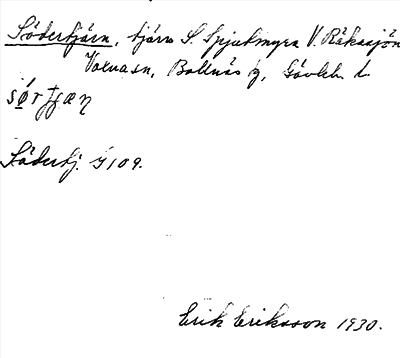 Södertjärn, tjärn S. Spjutmyra V. Råkasjön
Voxna sn, Bollnäs tg, Gävleb. l.
sǿrtʃæn
Södertj. G 109.
Erik Eriksson 1930.